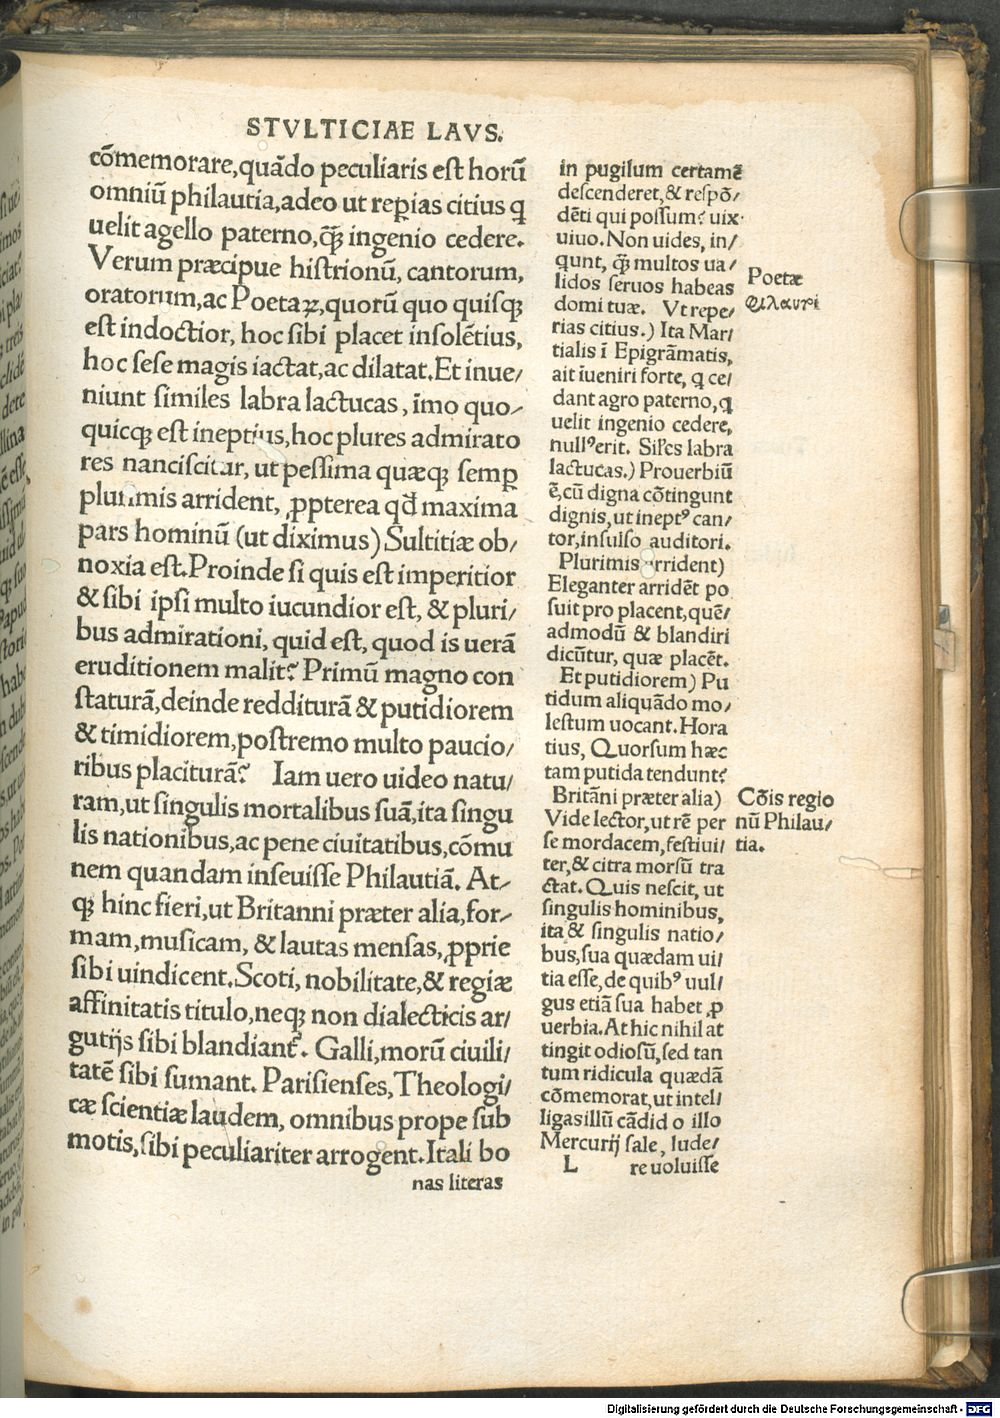 STVLTICIAE LAVS.
cōmemorare,quādo peculiaris est horū
omniū philautia,adeo ut rep̱ias citius q̄
uelit agello paterno,q̄ꝫ ingenio cedere.
Verum præcipue histrionū, cantorum,
oratorum,ac Poetaꝝ,quorū quo quisqꝫ
est indoctior, hoc sibi placet insolētius,
hoc sese magis iactat,ac dilatat.Et inue/
niunt similes labra lactucas, īmo quo/
quicqꝫ est ineptius,hoc plures admirato
res nanciscitur, ut pessima quæqꝫ semꝑ
plurimis arrident, ꝓpterea qđ maxima
pars hominū (ut diximus) Sultitiæ ob/
noxia est.Proinde si quis est imperitior
& sibi ipsi multo iucundior est, & pluri/
bus admirationi, quid est, quod is uerā
eruditionem malit? Primū magno con
staturā,deinde redditurā & putidiorem
& timidiorem,postremo multo paucio/
ribus placiturā? Iam uero uideo natu/
ram,ut singulis mortalibus suā,ita singu
lis nationibus,ac pene ciuitatibus,cōmu
nem quandam inseuisse Philautiā. At/
qꝫ hinc fieri,ut Britanni præter alia,for/
mam,musicam, & lautas mensas,ꝓprie
sibi uindicent.Scoti, nobilitate,& regiæ
affinitatis titulo,neqꝫ non dialecticis ar/
gutijs sibi blandiant᷑. Galli,morū ciuili/
tatē sibi sumant. Parisienses,Theologi/
cæ scientiæ laudem, omnibus prope sub
motis,sibi peculiariter arrogent.Itali bo
nas literas
in pugilum certamē
descenderet,& respō/
dēti qui possum? uix
uiuo.Non uides, in/
qunt, q̄ꝫ multos ua/
lidos seruos habeas
domi tuæ. Vt repe/
rias citius.) Ita Mar/
tialis ī Epigrāmatis,
ait īueniri forte, q̄ ce/
dant agro paterno,q̄
uelit ingenio cedere,
nullꝰerit. Sil̓es labra
lactucas.) Prouerbiū
ē,cū digna cōtingunt
dignis,ut ineptꝰ can/
tor,insulso auditori.
Plurimis arrident)
Eleganter arridēt po
suit pro placent,quē/
admodū & blandiri
dicūtur, quæ placēt.
Et putidiorem) Pu
tidum aliquādo mo/
lestum uocant.Hora
tius, Quorsum hæc
tam putida tendunt?
Britāni præter alia)
Vide lector,ut rē per
se mordacem,festiui/
ter,& citra morsū tra
ctat. Quis nescit, ut
singulis hominibus,
ita & singulis natio/
bus,sua quædam ui/
tia esse,de quibꝰ uul/
gus etiā sua habet ꝓ
uerbia.At hic nihil at
tingit odiosū,sed tan
tum ridicula quædā
cōmemorat,ut intel/
ligas illū cādid o illo
Mercurij sale, lude/
L re uoluisse
Poetæ
φιλαυτι
Cōis regio
nū Philau/
tia.
Digitalisierung gefördert durch die Deutsche Forschungsgemeinschaft - DFG